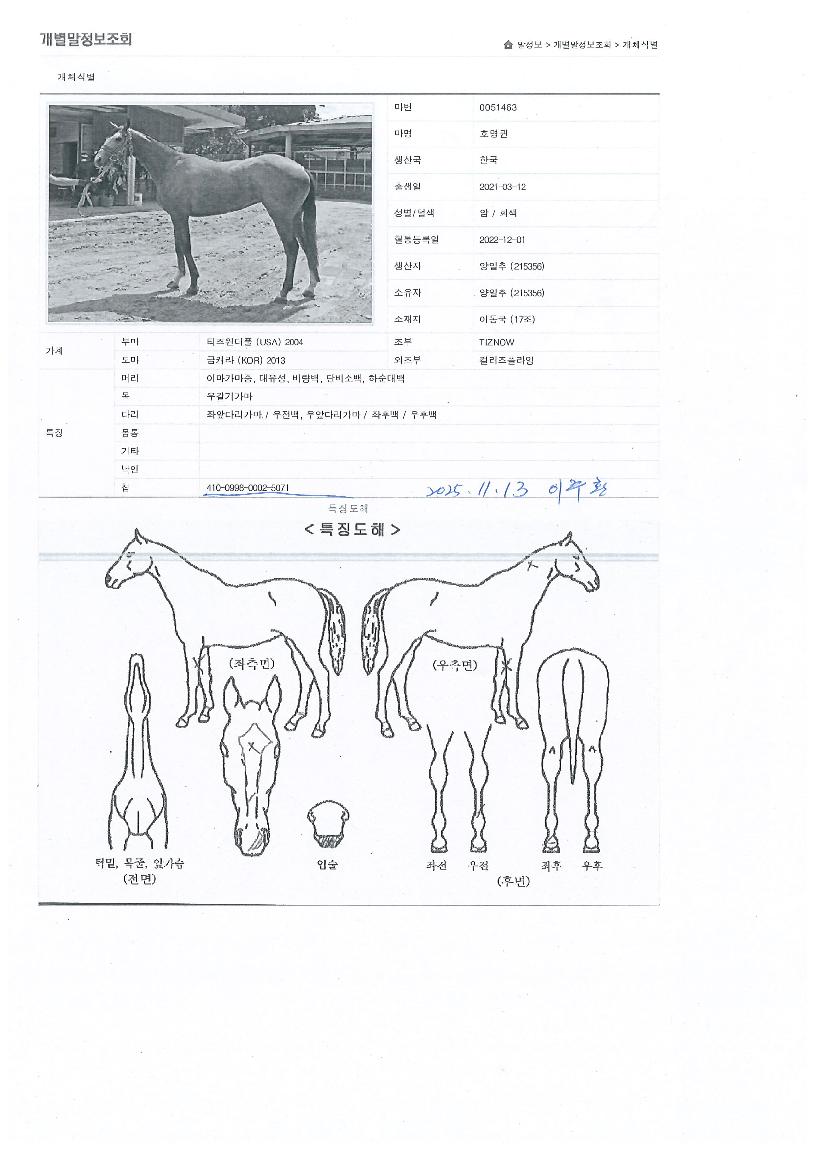 개별말정보조회
말정보 > 개별말정보조회 > 개체식별
개체식별
마번 0051463
마명 호령권
생산국 한국
출생일 2021-03-12
성별/털색 암 / 회색
혈통등록일 2022-12-01
생산자 양일추 (215356)
소유자 양일추 (215356)
소재지 이동국 (17조)
가계 부마 티즈원더풀 (USA) 2004 조부 TIZNOW
모마 금캐라 (KOR) 2013 외조부 컬러즈플라잉
특징 머리 이마가마중, 대유성, 비량백, 단비소백, 하순대백
목 우갈기가마
다리 좌앞다리가마 / 우전백, 우앞다리가마 / 좌후백 / 우후백
몸통
기타
낙인
칩 410-0998-0002-5071 2025.11.13
특징도해
< 특징도해 >
(좌측면) (우측면)
턱밑, 목줄, 앞가슴 입술 좌전 우전 좌후 우후
(전면) (후면)